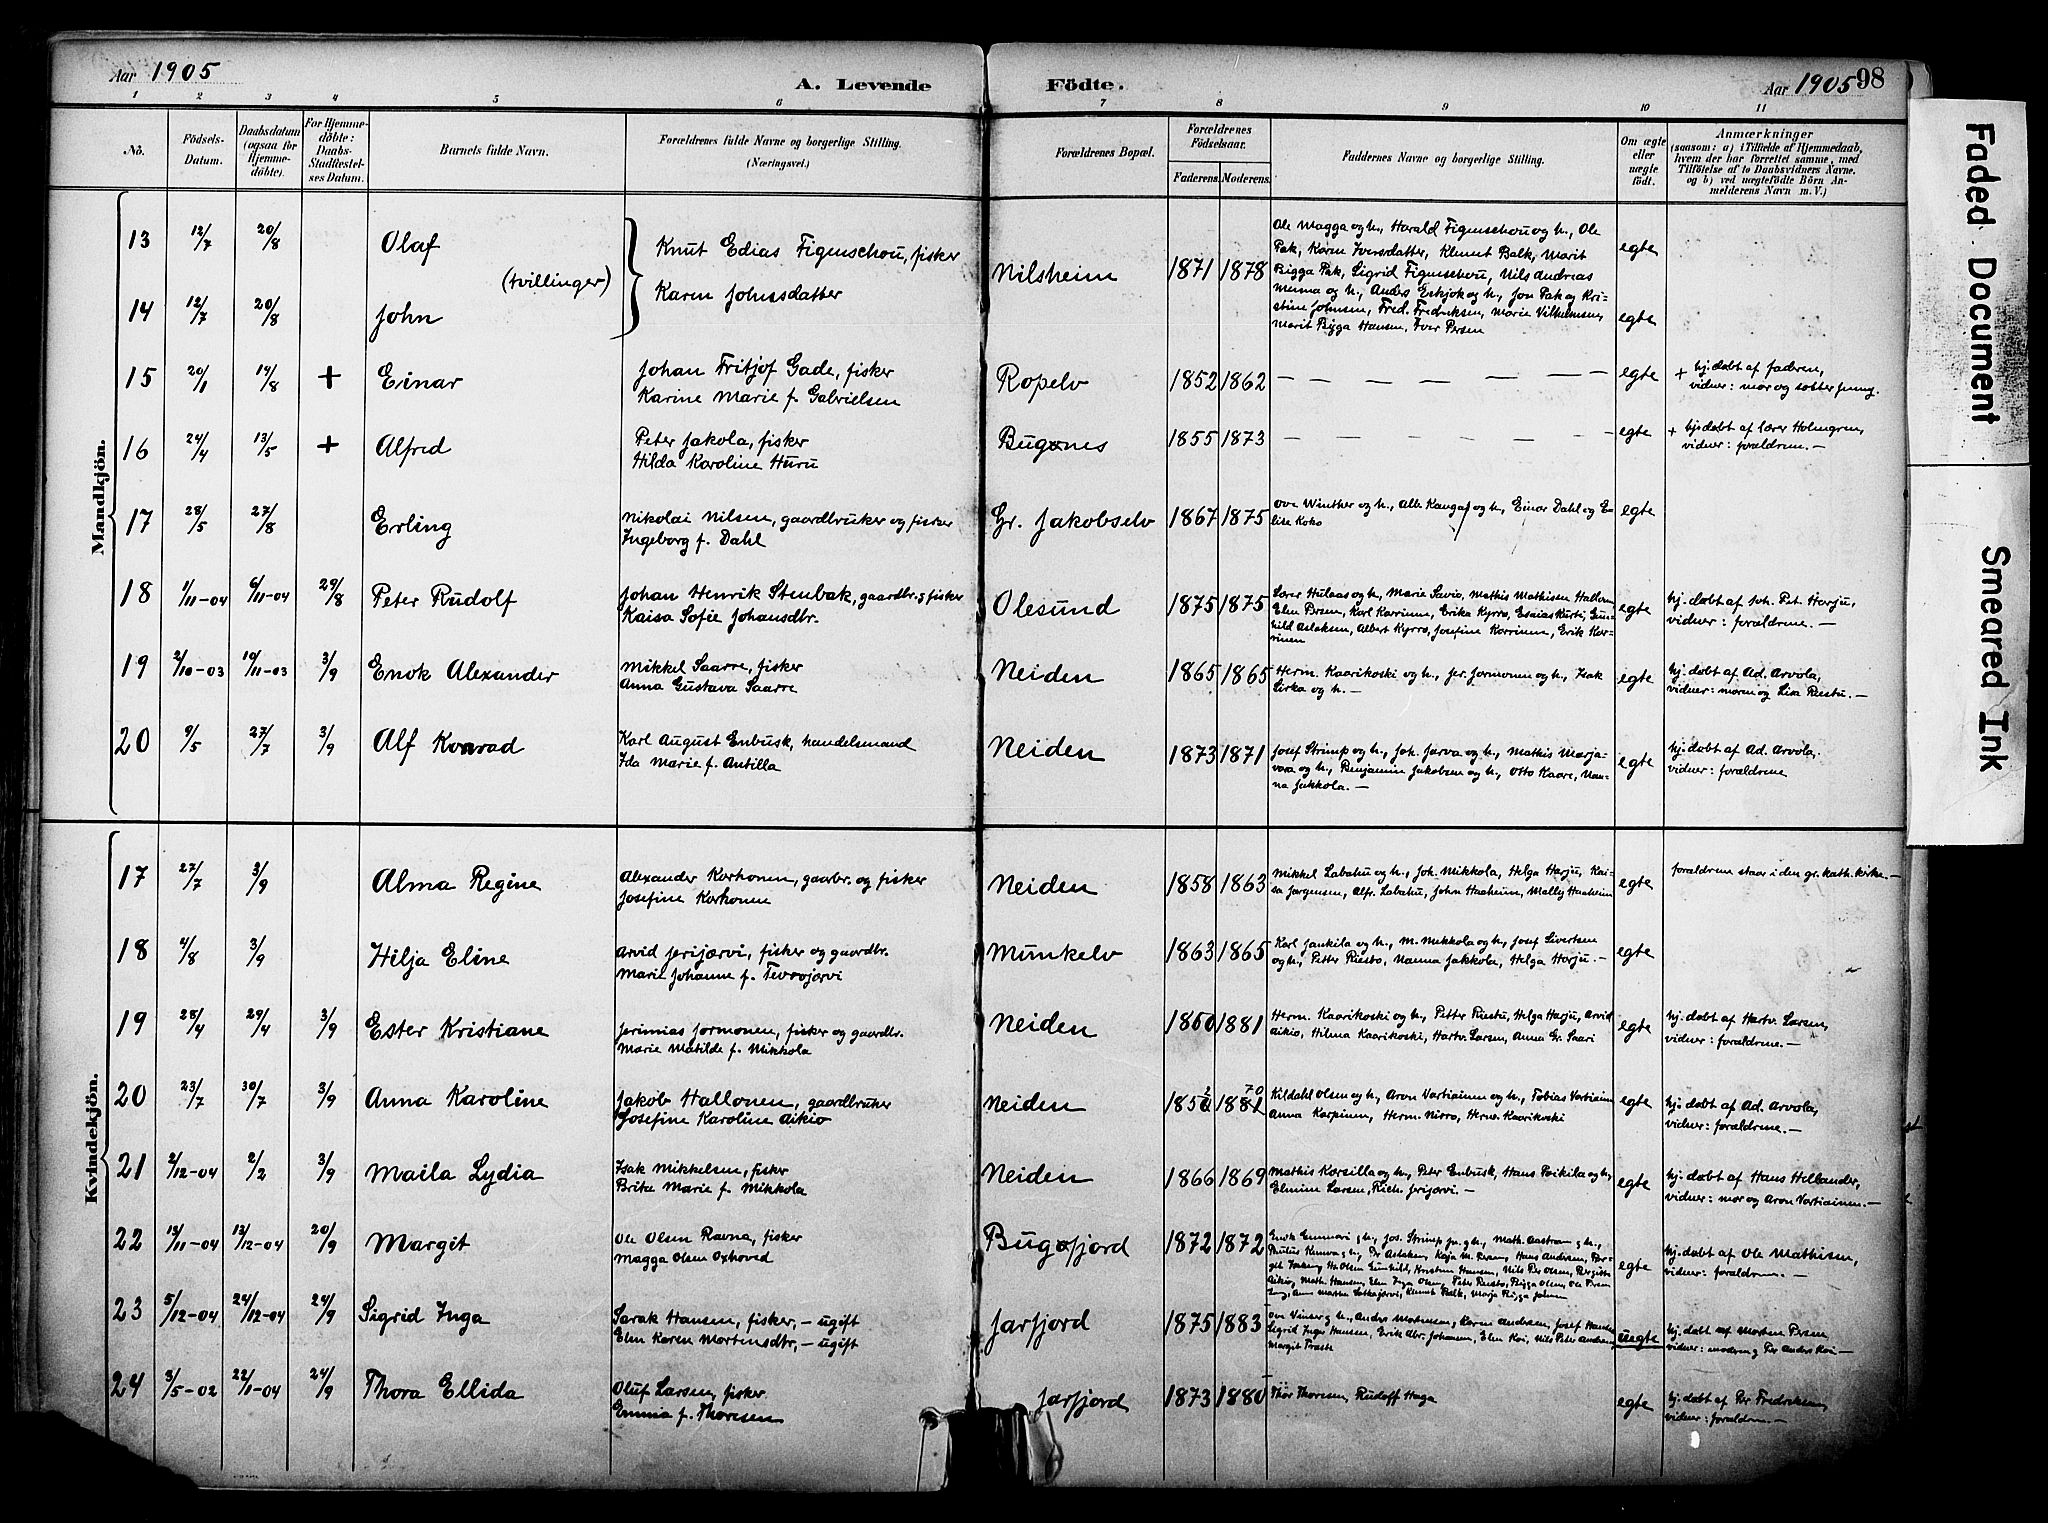 Aar 1905
A. Levende Födte.
Aar 1905 98
1 2 3 4 5 6 7 8 9 10 11
No.
Födsels-Datum.
Daabsdatum (ogsaa for Hjemmedöbte).
For Hjemmedöbte: Daabs-Stadfæstelses Datum.
Barnets fulde Navn.
Forældrenes fulde Navne og borgerlige Stilling. (Næringsvei.)
Forældrenes Bopæl.
Forældrenes Födselsaar.
Faderens. Moderens.
Faddernes Navne og borgerlige Stilling.
Om ægte eller uægte födt.
Anmærkninger
(saasom: a) i Tilfælde af Hjemmedaab,
hvem der har forrettet samme, med
Tilföielse af to Daabsvidners Navne.
og b) ved uægtefödte Börn An-
melderens Navn m. V.)
Mandkjön.
13 12/7 20/8 Olaf
(tvillinger)
Knut Edias Figenschou, fisker
Karen Johnsdatter
Nilsheim 1871 1878
Ole Magga og h., Harald Figenschou og h., Ole
Pak, Karen Iversdatter, Klemet Balk, Marit
Bigga Pak, Sigrid Figenschou, Nils Andreas
Menna og h., Anders Erkjok og h., Jon Pak og Kri-
stine Johnsen, Fred. Fredriksen, Marie Vilhelmsen,
Marit Bigga Hansen, Iver Persen
egte
14 12/7 20/8 John egte
15 20/1 19/8 + Einar
Johan Fritjof Gade, fisker
Karine Marie f. Gabrielsen
Ropelv 1852 1862 — — — — — — — egte
+ hj. døbt af faderen,
vidner: mor og
16 24/4 13/5 + Alfred
Peter Jakola, fisker
Hilda Karoline Huru
Bugønes 1855 1873 — — — — — — — egte
+ hj. døbt af lærer Holmgren,
vidner: forældrene. —
17 28/5 27/8 Erling
Nikolai Nilsen, gaardbruker og fisker
Ingeborg f. Dahl
Gr. Jakobselv 1867 1875
Ove Winther og h., Alb. Kangas og h., Einar Dahl og E-
lise Koko
egte
18 1/11-04 6/11-04 29/8 Peter Rudolf
Johan Henrik Stenbak, gaardbr. og fisker
Kaisa Sofie Johansdtr.
Olesund 1875 1875
Lærer Hulaas og h., Marie Savio, Mathis Mathisen Hallonen,
Elen Persen, Karl Karrinen, Erika Kyrrø, Esaias Kurti, Gun-
hild Aslaksen, Albert Kyrrø, Josefine Korrinen, Erik Kor-
rinen
egte
hj. døbt af Joh. Pet. Harju,
vidner: forældrene. —
19 2/10-03 19/11-03 3/9 Enok Alexander
Mikkel Saarre, fisker
Anna Gustava Saarre
Neiden 1865 1865
Herm. Kaarikoski og h., Jer. Jormonen og h., Isak
Sirka og h. —
egte
hj. døbt af Ad. Arvola,
vidner: moren og Lisa Riestu. —
20 9/5 27/7 3/9 Alf Konrad
Karl August Enbusk, handelsmand
Ida Marie f. Antilla
Neiden 1873 1871
Josef Strimp og h., Joh. Jarva og h., Mathis Marja-
vara og h., Benjamin Jakobsen og h., Otto Kaare, Nan-
na Jakkola. —
egte
hj. døbt af Ad. Arvola.
vidner: forældrene
Kvindekjön.
17 27/7 3/9 Alma Regine
Alexander Korhonen, gaardbr. og fisker
Josefine Korhonen
Neiden 1858 1863
Mikkel Labahu og h., Joh. Mikkola, Helga Harju, Kai-
sa Jørgensen, Alfr. Labahu, John Haaheim, Mally Haaheim
egte
forældrene staar i den gr. kath. kirke. —
18 4/8 3/9 Hilja Eline
Arvid Jerijærvi, fisker og gaardbr.
Marie Johanne f. Tervojærvi
Munkelv 1863 1865
Karl Jankila og h., M. Mikkola og h., Josef Sivertsen
og h., Petter Riesto, Nanna Jakkola, Helga Harju. —
egte
19 28/4 29/4 3/9 Ester Kristiane
Jerimias Jormonen, fisker og gaardbr.
Marie Matilde f. Mikkola
Neiden 1850 1881
Herm. Kaarikoski og h., Petter Riestu, Helga Harju, Arvid
Aikio, Hilma Kaarikoski, Hartv. Larsen, Anna Gr. Saari
egte
hj. døbt af Hartv. Larsen,
vidner: forældrene. —
20 23/7 30/7 3/9 Anna Karoline
Jakob Hallonen, gaardbruker
Josefine Karoline Aikio
Neiden 1852 1870
Kildahl Olsen og h., Aron Vartiainen og h., Tobias Vartiainen
Anna Karpinen, Herm. Nirro, Henr. Kaarikoski
egte
hj. døbt af Ad. Arvola,
vidner: forældrene. —
21 2/12-04 2/2 3/9 Maila Lydia
Isak Mikkelsen, fisker
Brita Marie f. Mikkola
Neiden 1866 1869
Mathis Korsilla og h., Peter Enbusk, Hans Poikila og h.,
Elmine Larsen, Rich. Jerijærvi. —
egte
hj. døbt af Hans Hellander,
vidner: mor og Aron Vartiainen. —
22 19/11-04 13/12-04 20/9 Margit
Ole Olsen Ravna, fisker
Magga Olsen Oxhoved
Bugøfjord 1872 1872
egte
hj. døbt af Ole Mathisen,
vidner: forældrene. —
23 5/12-04 24/12-04 24/9 Sigrid Inga
Sarak Hansen, fisker, — ugift
Elen Karen Mortensdtr, — ugift
Jarfjord 1875 1883
Sigrid Inger Hansen, Erik Abr. Johansen, Elen Koi, Nils Peter Andersen,
Margit Traste
uegte
hj. døbt af Morten Persen,
vidner: moderen og Per Anders Koi —
24 3/5-02 22/1-04 24/9 Thora Ellida
Oluf Larsen, fisker
Emma f. Thoresen
Jarfjord 1873 1880
Thor Thoresen, Rudolf Haga
egte
hj. døbt af Per Fredriksen,
vidner: forældrene. —
Faded Document
Smeared Ink